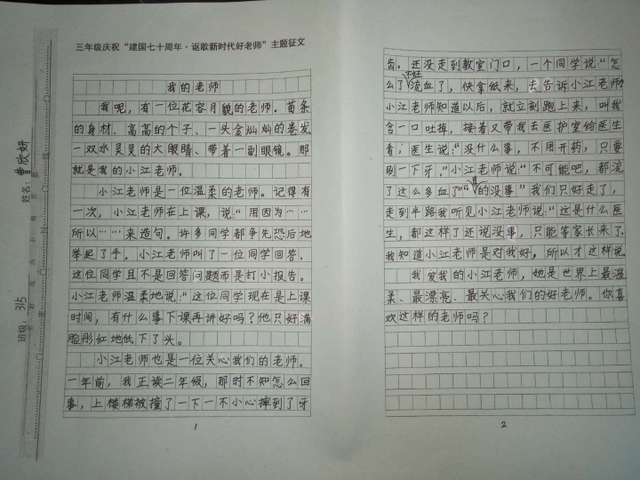 三年级庆祝“建国七十周年·讴歌新时代好老师”主题征文
我的老师
我呢，有一位花容月貌的老师。苗条
的身材、高高的个子、一头金灿灿的卷发、
一双水灵灵的大眼睛、带着一副眼镜。那
就是我的小江老师。
小江老师是一位温柔的老师。记得有
一次，小江老师在上课，说“用因为……
所以……来造句。许多同学都争先恐后地
举起了手。小江老师叫了一位同学回答。
这位同学且不是回答问题而是打小报告。
小江老师温柔地说：“这位同学现在是上课
时间，有什么事下课再讲好吗？他只好满
脸彤红地低下了头。
小江老师也是一位关心我们的老师。
一年前，我正读二年级，那时不知怎么回
事，上楼梯被撞了一下一不小心摔到了牙
1
齿。还没走到教室门口，一个同学说“怎
么了流血了，快拿纸来，去告诉小江老师
小江老师知道以后，就立刻跑上来，叫我
含一口吐掉，接着又带我去医护室给医生
看，医生说：“没什么事，不用开药，只要
别一下牙。”小江老师说：“不可能吧，都流
了这么多血了“的没事”我们只好走了，
走到半路我听见小江老师说：“这是什么医
生，都这样了还说没事，只能等家长来了。
我知道小江老师是对我好，所以才这样说
我爱我的小江老师，她是世界上最温
柔、最漂亮、最关心我们的好老师。你喜
欢这样的老师吗？
2
班级：315
姓名：曹欣妍